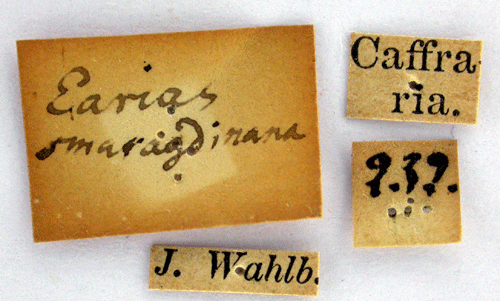 Earias
smaragdinana
Caffra-
ria.
9.39.
J. Wahlb.